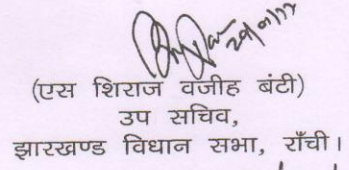 (एस शिराज वजीह बंटी)
उप सचिव,
झारखण्ड विधान सभा, राँची।